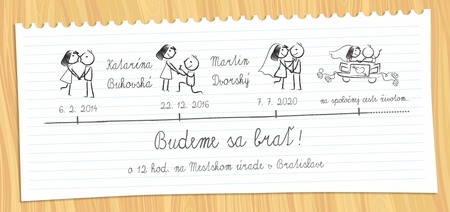 Katarína
Bukovská
Martin
Dvorský
6. 2. 2014
22. 12. 2016
7. 7. 2020
na spoločnej ceste životom...
Budeme sa brať!
o 12 hod. na Mestskom úrade v Bratislave